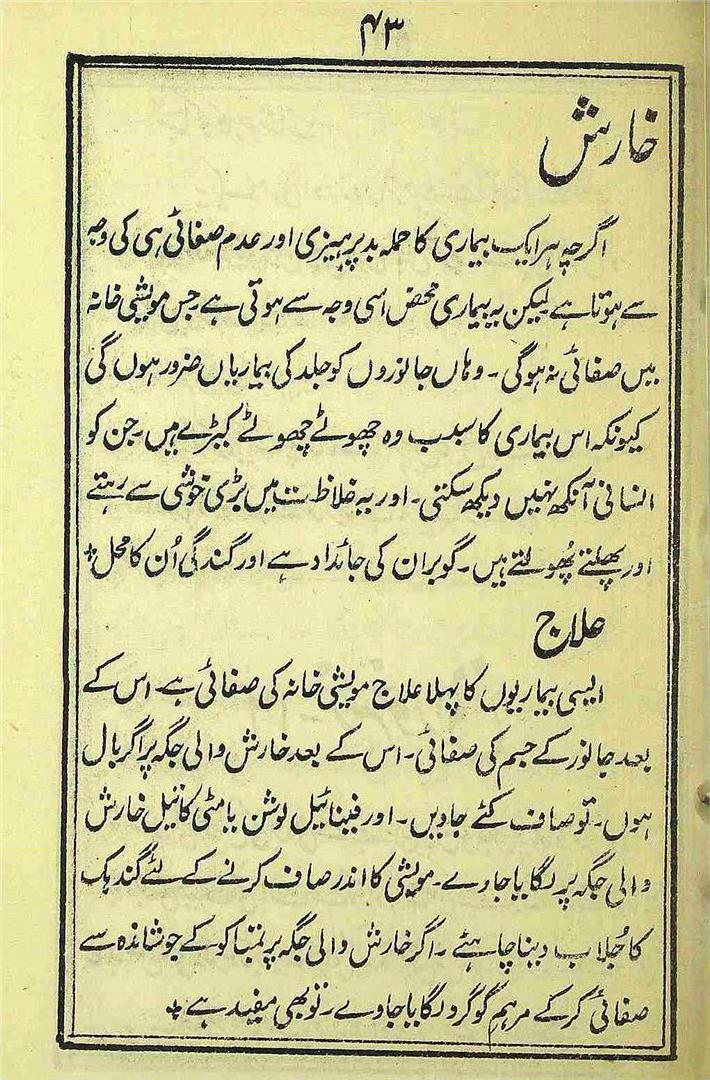 ۴۳
خارش
اگرچہ ہر ایک بیماری کا حملہ بدپرہیزی اور عدم صفائی ہی کی وجہ
سے ہوتا ہے لیکن یہ بیماری محض اسی وجہ سے ہوتی ہے جس مویشی خانہ
میں صفائی نہ ہوگی۔ وہاں جانوروں کو جلد کی بیماریاں ضرور ہوں گی
کیونکہ اس بیماری کا سبب وہ چھوٹے چھوٹے کیڑے ہیں۔ جن کو
انسانی آنکھ نہیں دیکھ سکتی۔ اور یہ غلاظت میں بڑی خوشی سے رہتے
اور پھلتے پُھولتے ہیں۔ گوبر ان کی جائداد ہے اور گندگی اُن کا محل٭
علاج
ایسی بیماریوں کا پہلا علاج مویشی خانہ کی صفائی ہے۔ اس کے
بعد جانور کے جسم کی صفائی۔ اس کے بعد خارش والی جگہ پر اگر بال
ہوں۔ تو صاف کئے جاویں۔ اور فینائیل لوشن یا مٹی کا تیل خارش
والی جگہ پر لگایا جاوے۔ مویشی کا اندر صاف کرنے کے لئے گندہک
کا جُلاب دینا چاہئے۔ اگر خارش والی جگہ پر تمباکو کے جوشاندہ سے
صفائی کر کے مرہم گوگرد لگایا جاوے۔ تو بھی مفید ہے٭